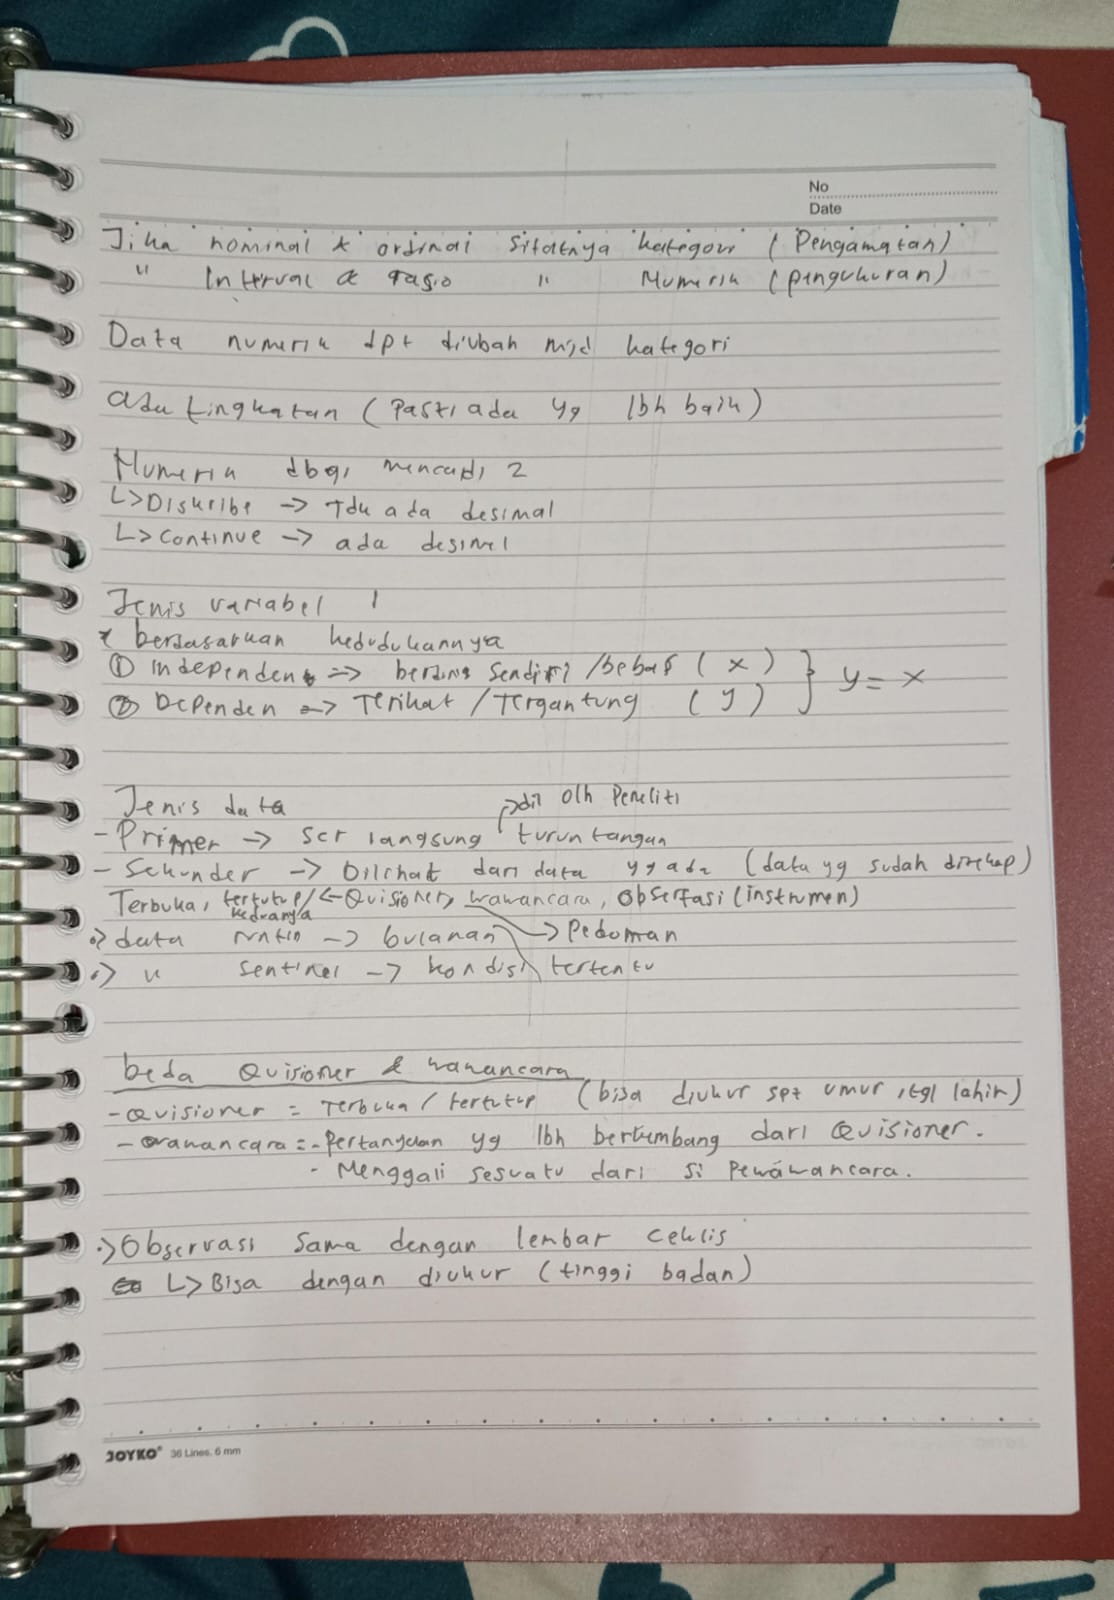 No
Date
Jika nominal & ordinal sifatnya kategori (Pengamatan)
" Interval & rasio " Numerik (pengukuran)
Data numerik dpt diubah mjd kategori
ada tingkatan (Pasti ada yg lbh baik)
Numerik dbgi mencadi 2
L> Diskribe -> Tdk ada desimal
L> Continue -> ada desimel
Jenis variabel !
* berdasarkan kedudukannya
① Independen => berdiri sendiri /bebas (x) } y = x
② Dependen => Terikat / Tergantung (y)
Jenis data
dil olh Peneliti
- Primer -> scr langsung turun tangan
- Sekunder -> Dilihat dari data yg ada (data yg sudah direkap)
Terbuka, tertutup/ <- Quisioner, wawancara, Obserfasi (instrumen)
keduanya
•> data rutin -> bulanan -> Pedoman
•> " sentinel -> kondisi tertentu
beda Quisioner & wawancara
- Quisioner = Terbuka / tertutup (bisa diukur spt umur, tgl lahir)
- wawancara = - Pertanyaan yg lbh berkembang dari Quisioner.
- Menggali sesuatu dari si Pewawancara.
•> Observasi sama dengan lembar ceklis
L> Bisa dengan diukur (tinggi badan)
JOYKO® 36 Lines. 6 mm